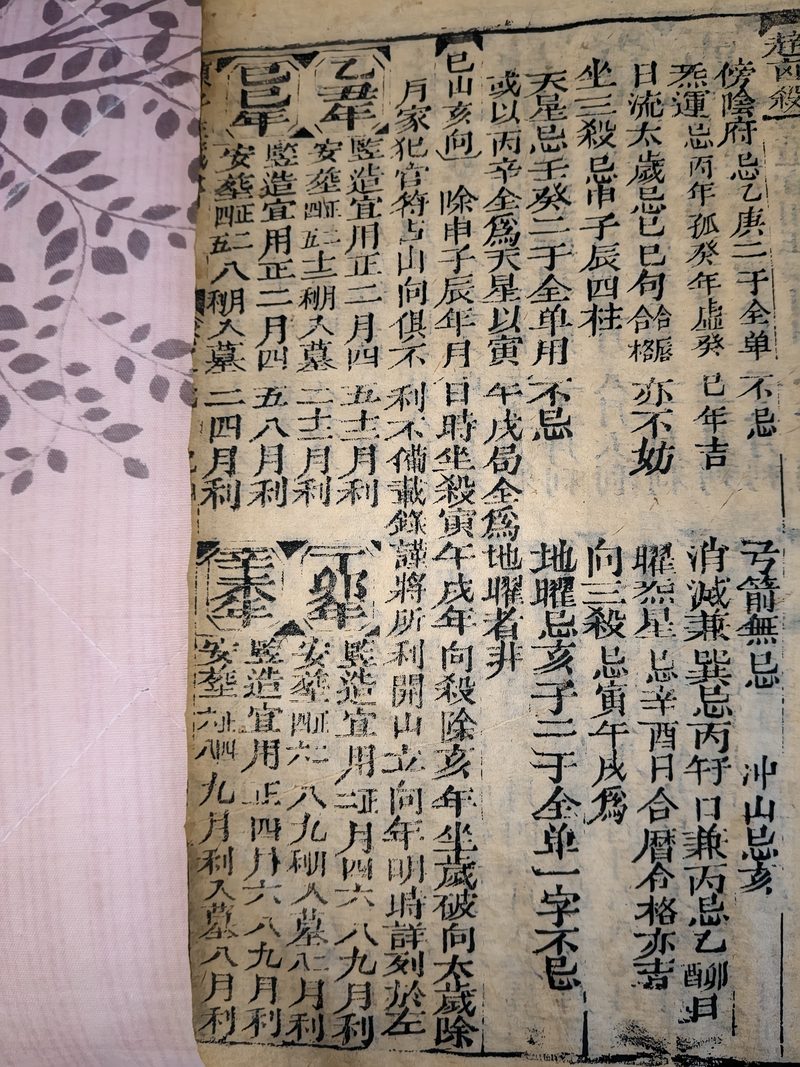 傍陰府忌乙庚二干全单不忌
弓箭無忌
冲山忌亥
炁運忌丙年孤癸年虛癸巳年吉
消滅兼巽忌丙午日兼丙忌乙酉卯日
日流太歲忌己巳旬合格亦不妨
曜炁星忌辛酉日合曆合格亦吉
坐三殺忌申子辰四柱
向三殺忌寅午戌為
天星忌壬癸二干全单用不忌
地曜忌亥子二干全单一字不忌
或以丙辛全爲天星以寅午戌局全爲地曜者非
巳山亥向
除申子辰年月日時坐殺寅午戌年向殺除亥年坐歲破向太歲除
月家犯官符占山向俱不利不備載錄謹將所利開山立向年明時詳列於左
乙丑年
竪造宜用正二月四五十一月利
安塟正四二五十二月利入墓二十二月利
丁卯年
竪造宜用正二月四六八九月利
安塟正四二六八九月利入墓八二月利
己巳年
竪造宜用正二月四五八月利
安塟正四二五八月利入墓二四月利
辛未年
竪造宜用正四月六八九月利
安塟正六四八九月利入墓八月利